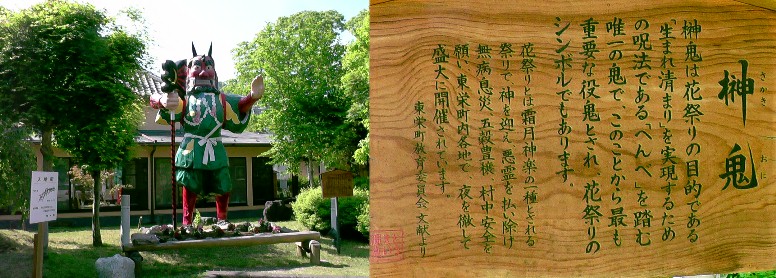 榊鬼
さかき おに
榊鬼は花祭りの目的である
「生まれ清まり」を実現するため
の呪法である「へんべ」を踏む
唯一の鬼で、このことから最も
重要な役鬼とされ、花祭りの
シンボルでもあります。
花祭りとは霜月神楽の一種とされる
祭りで、神を迎え悪霊を払い除け
無病息災・五穀豊穣・村中安全を
願い、東栄町内各地で一夜を徹して
盛大に開催されています。
東栄町教育委員会 文献より